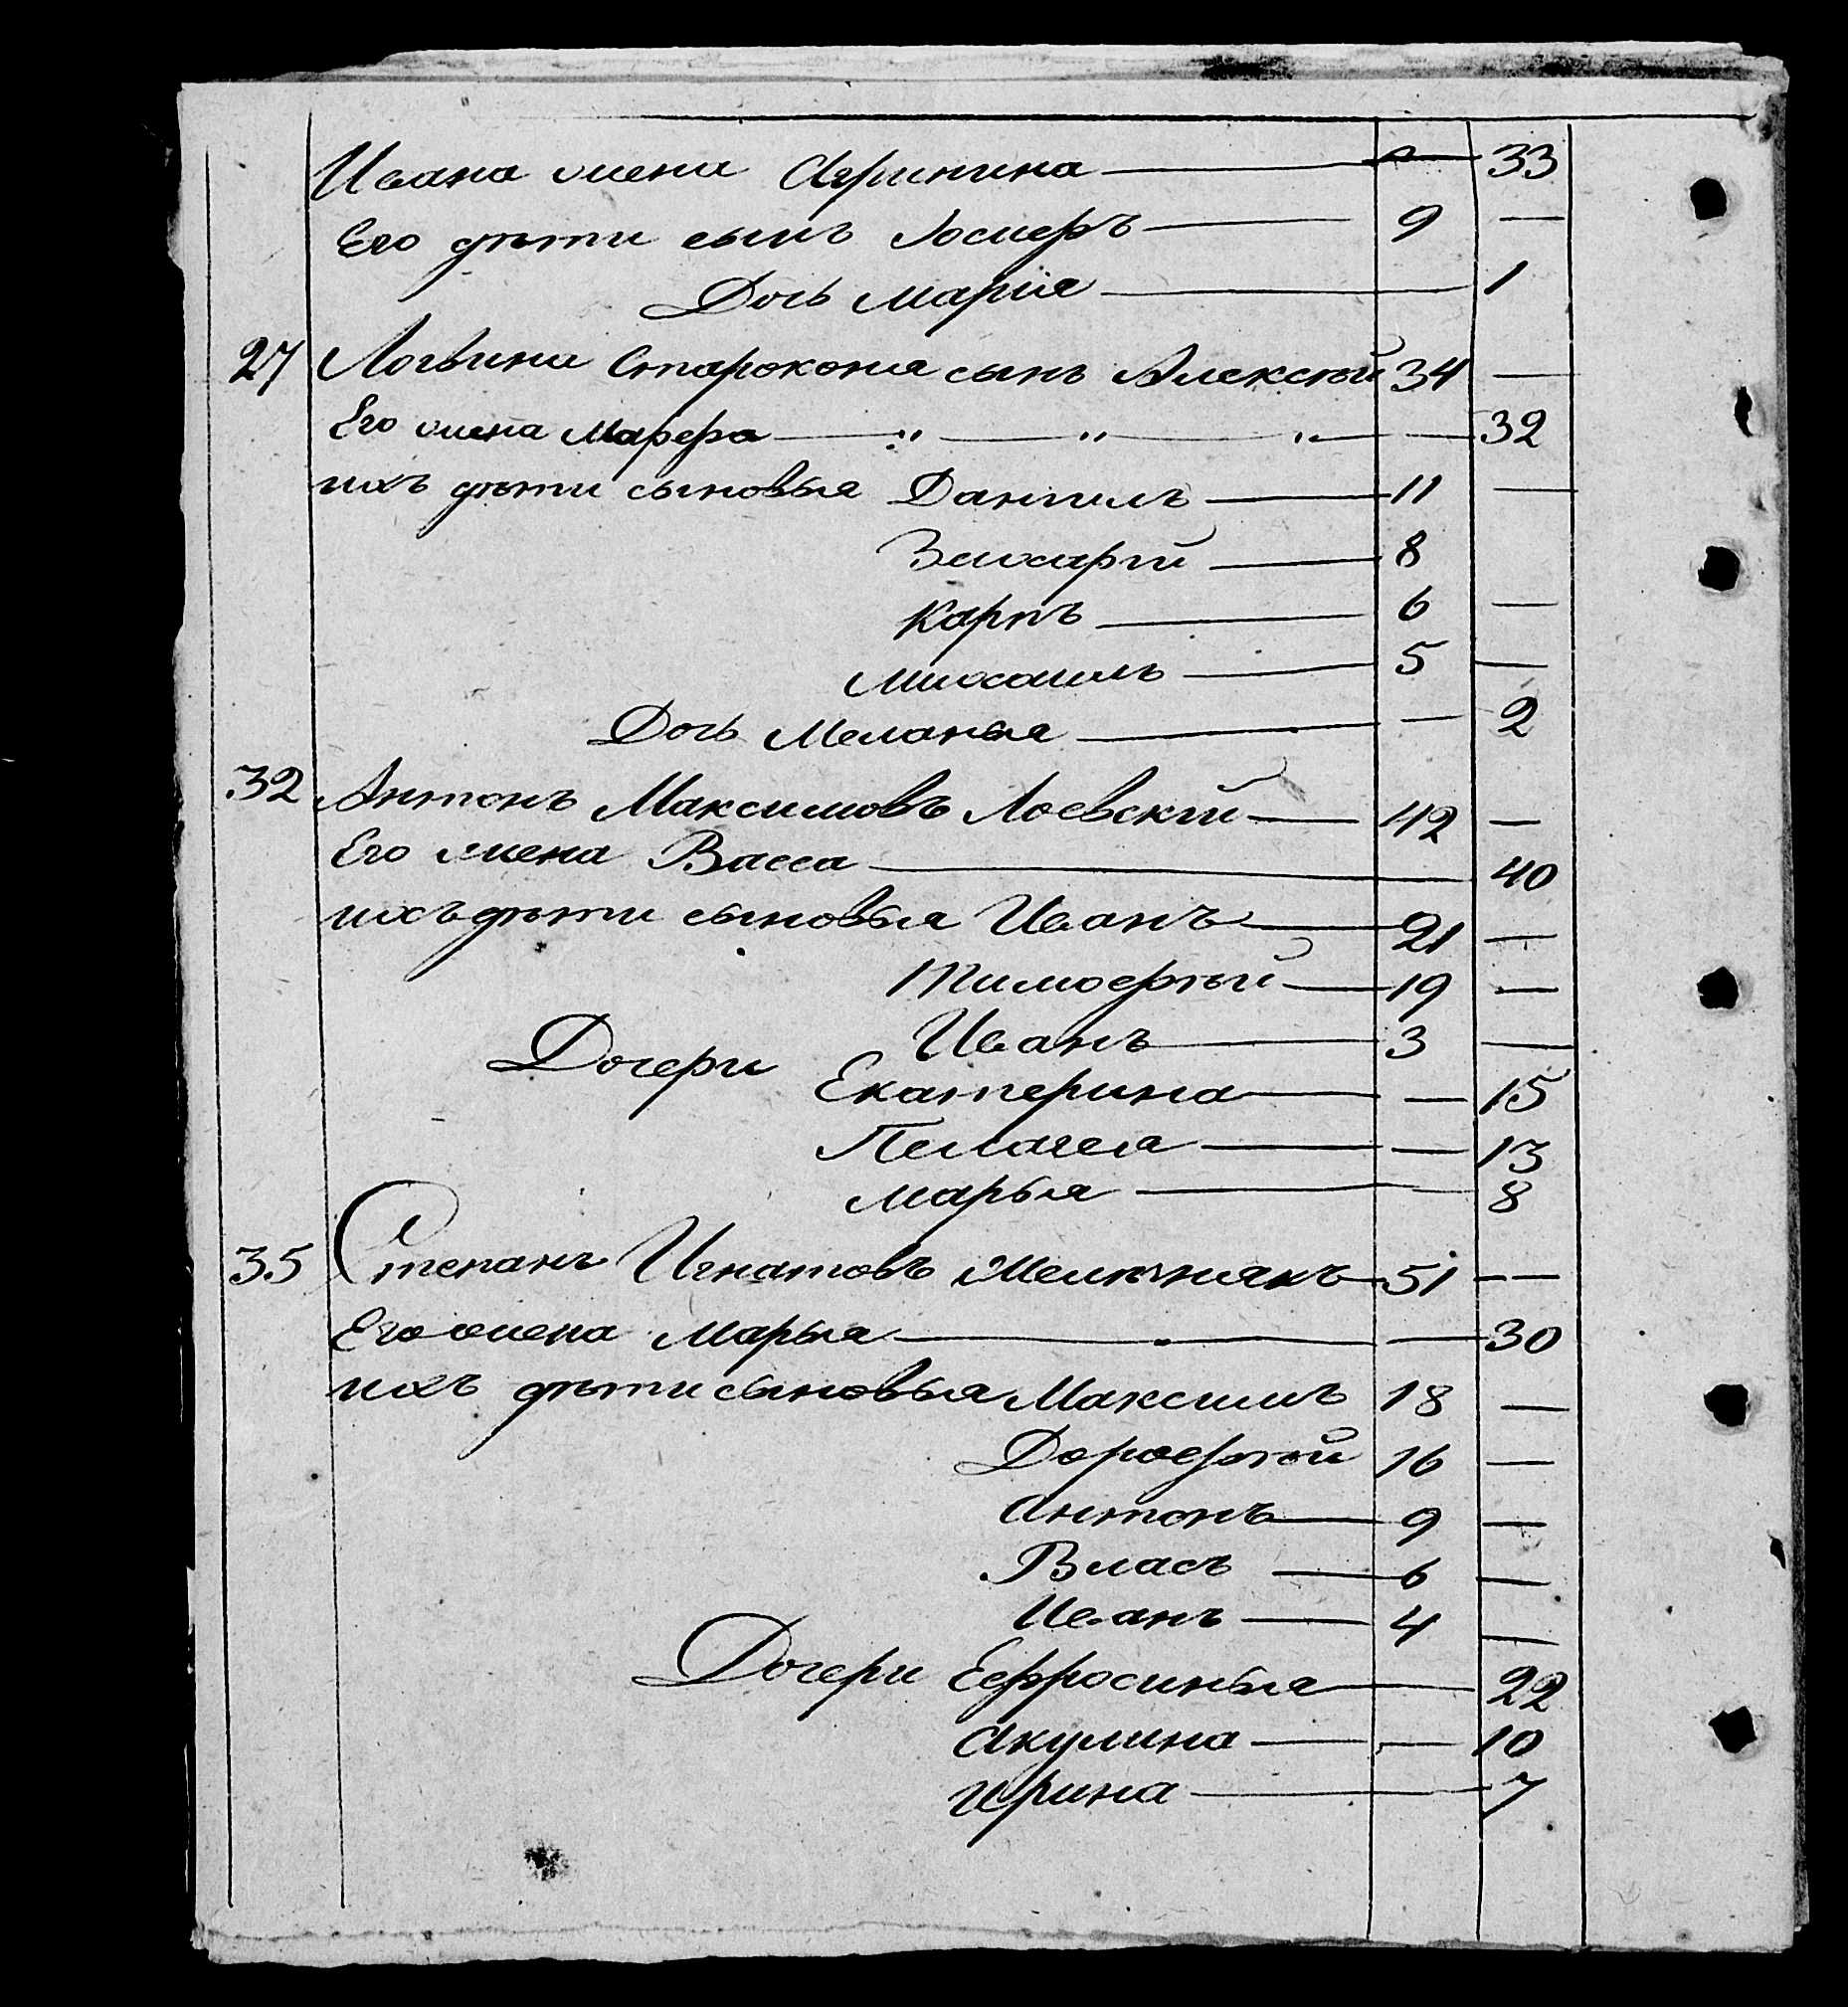 Ивана жена Агрипина — 33
Его дѣти сынъ Іосифъ — 9 —
Дочь Марія — 1
27 Логвина Староконя сынъ Алексѣй 34 —
Его жена Марфа — " — " — " — — 32
ихъ дѣти сыновья Даніилъ — 11 —
Захарій — 8
Карпъ — 6 —
Михаилъ — 5 —
Дочь Меланья — — 2
32 Антонъ Максимовъ Лоевскій — 42 —
Его жена Васса — 40
ихъ дѣти сыновья Иванъ — 21 —
Тимофѣй — 19 —
Иванъ — 3 —
Дочери Екатерина — — 15
Пелагея — — 13
Марья — — 8
35 Степанъ Игнатовъ Мельнякъ — 51 — —
Его жена Марья — — 30
ихъ дѣти сыновья Максимъ 18 —
Дорофѣй 16 —
Антонъ — 9 —
Власъ — 6 —
Иванъ — 4 —
Дочери Ефросинья — — 22
Акулина — — 10
Ирина — 7